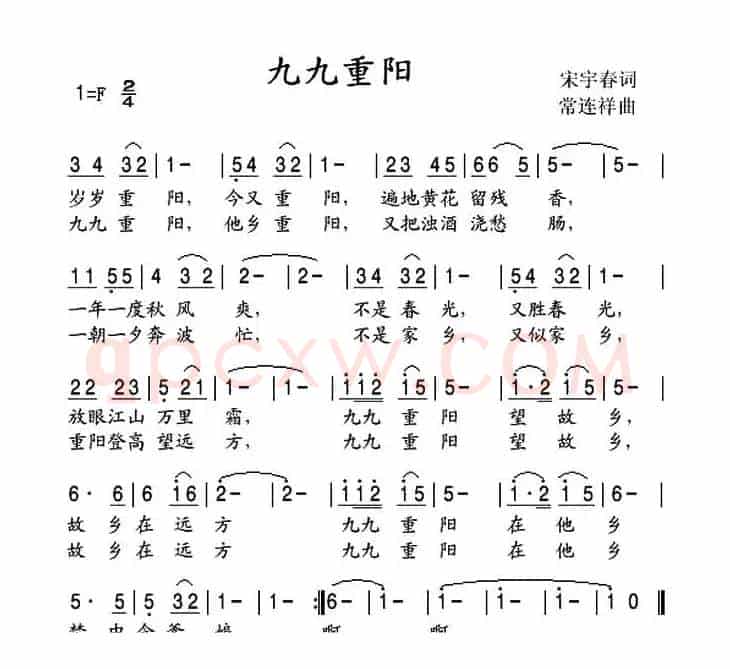 九九重阳
宋宇春词
1=F 2/4
常连祥曲
3 4 3 2 | 1 - | 5 4 3 2 | 1 - | 2 3 4 5 | 6 6 5 | 5 - | 5 - |
岁岁重阳，今又重阳，遍地黄花留残香，
九九重阳，他乡重阳，又把浊酒浇愁肠，
1 1 5 5 | 4 3 2 | 2 - | 2 - | 3 4 3 2 | 1 - | 5 4 3 2 | 1 - |
一年一度秋风爽，不是春光，又胜春光，
一朝一夕奔波忙，不是家乡，又似家乡，
qpcxw.COM
2 2 2 3 | 5 2 1 | 1 - | 1 - | 1 1 2 | 1 5 | 5 - | 1 · 2 | 1 5 |
放眼江山万里霜，九九重阳望故乡，
重阳登高望远方，九九重阳望故乡，
6 · 6 | 6 1 6 | 2 - | 2 - | 1 1 2 | 1 5 | 5 - | 1 · 2 | 1 5 |
故乡在远方九九重阳在他乡
故乡在远方九九重阳在他乡
5 · 5 | 5 3 2 | 1 - | 1 - :‖ 6 - | 1 - | 1 - | 1 - | 1 0 ‖